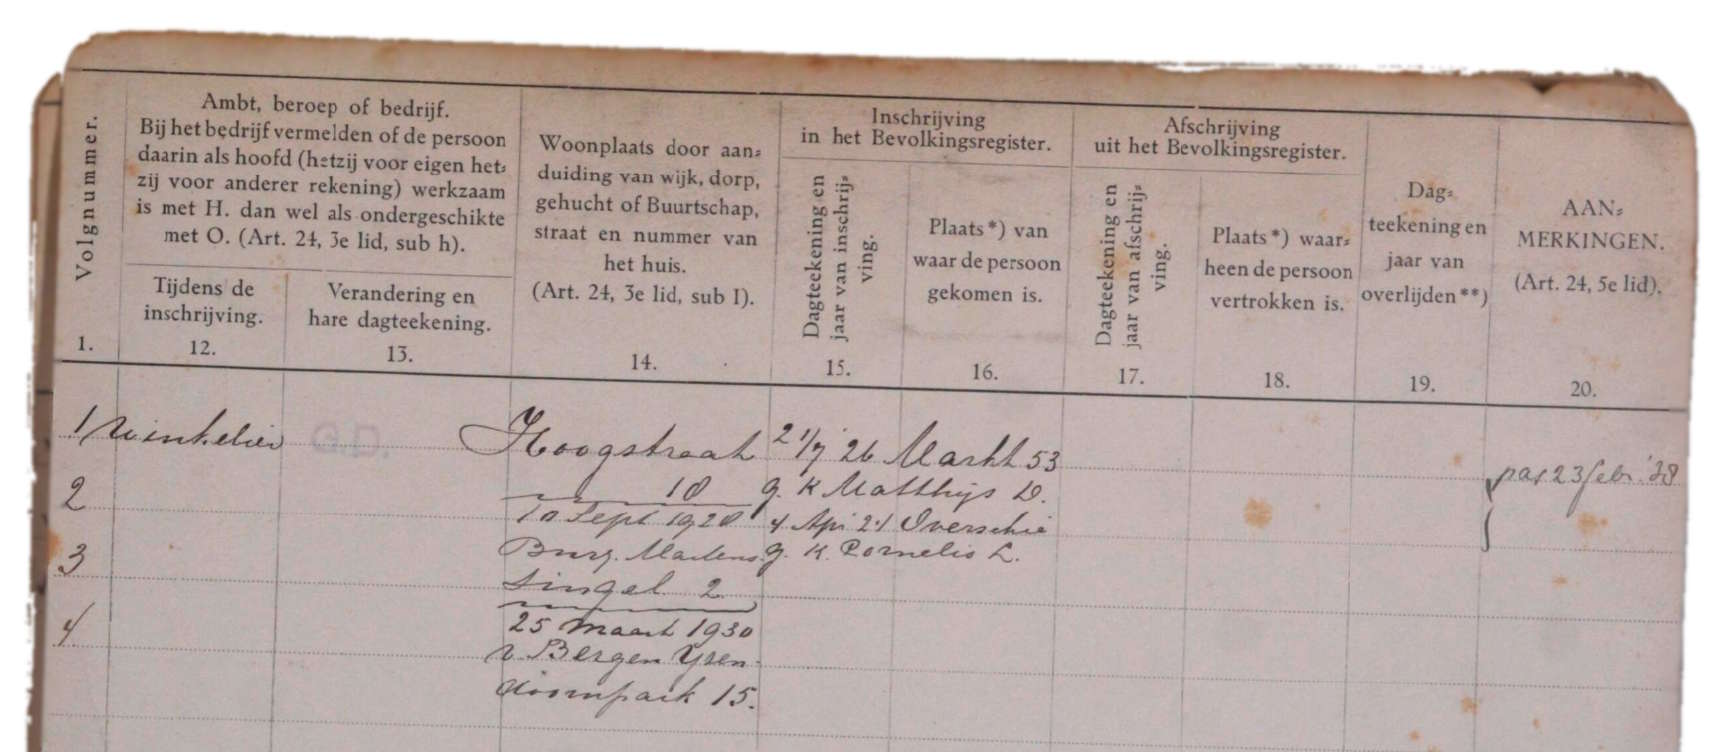 Volgnummer.
1.
Ambt, beroep of bedrijf.
Bij het bedrijf vermelden of de persoon
daarin als hoofd (hetzij voor eigen het=
zij voor anderer rekening) werkzaam
is met H. dan wel als ondergeschikte
met O. (Art. 24, 3e lid, sub h).
Tijdens de
inschrijving.
12.
Verandering en
hare dagteekening.
13.
Woonplaats door aan=
duiding van wijk, dorp,
gehucht of Buurtschap,
straat en nummer van
het huis.
(Art. 24, 3e lid, sub I).
14.
Inschrijving
in het Bevolkingsregister.
Dagteekening en
jaar van inschrij=
ving.
15.
Plaats*) van
waar de persoon
gekomen is.
16.
Afschrijving
uit het Bevolkingsregister.
Dagteekening en
jaar van afschrij=
ving.
17.
Plaats*) waar=
heen de persoon
vertrokken is.
18.
Dag=
teekening en
jaar van
overlijden**)
19.
AAN=
MERKINGEN.
(Art. 24, 5e lid).
20.
1 Winkelier G.D. Hoogstraat 21/7 26 Markt 53
pas 23 febr. '28
2 10 g. K Matthijs D.
10 Sept 1928 4 Apr 21 Overschie
3 Burg. Martens g. K. Cornelis L.
Singel 2
4 25 Maart 1930
v Bergen Ysen
doornpark 15.